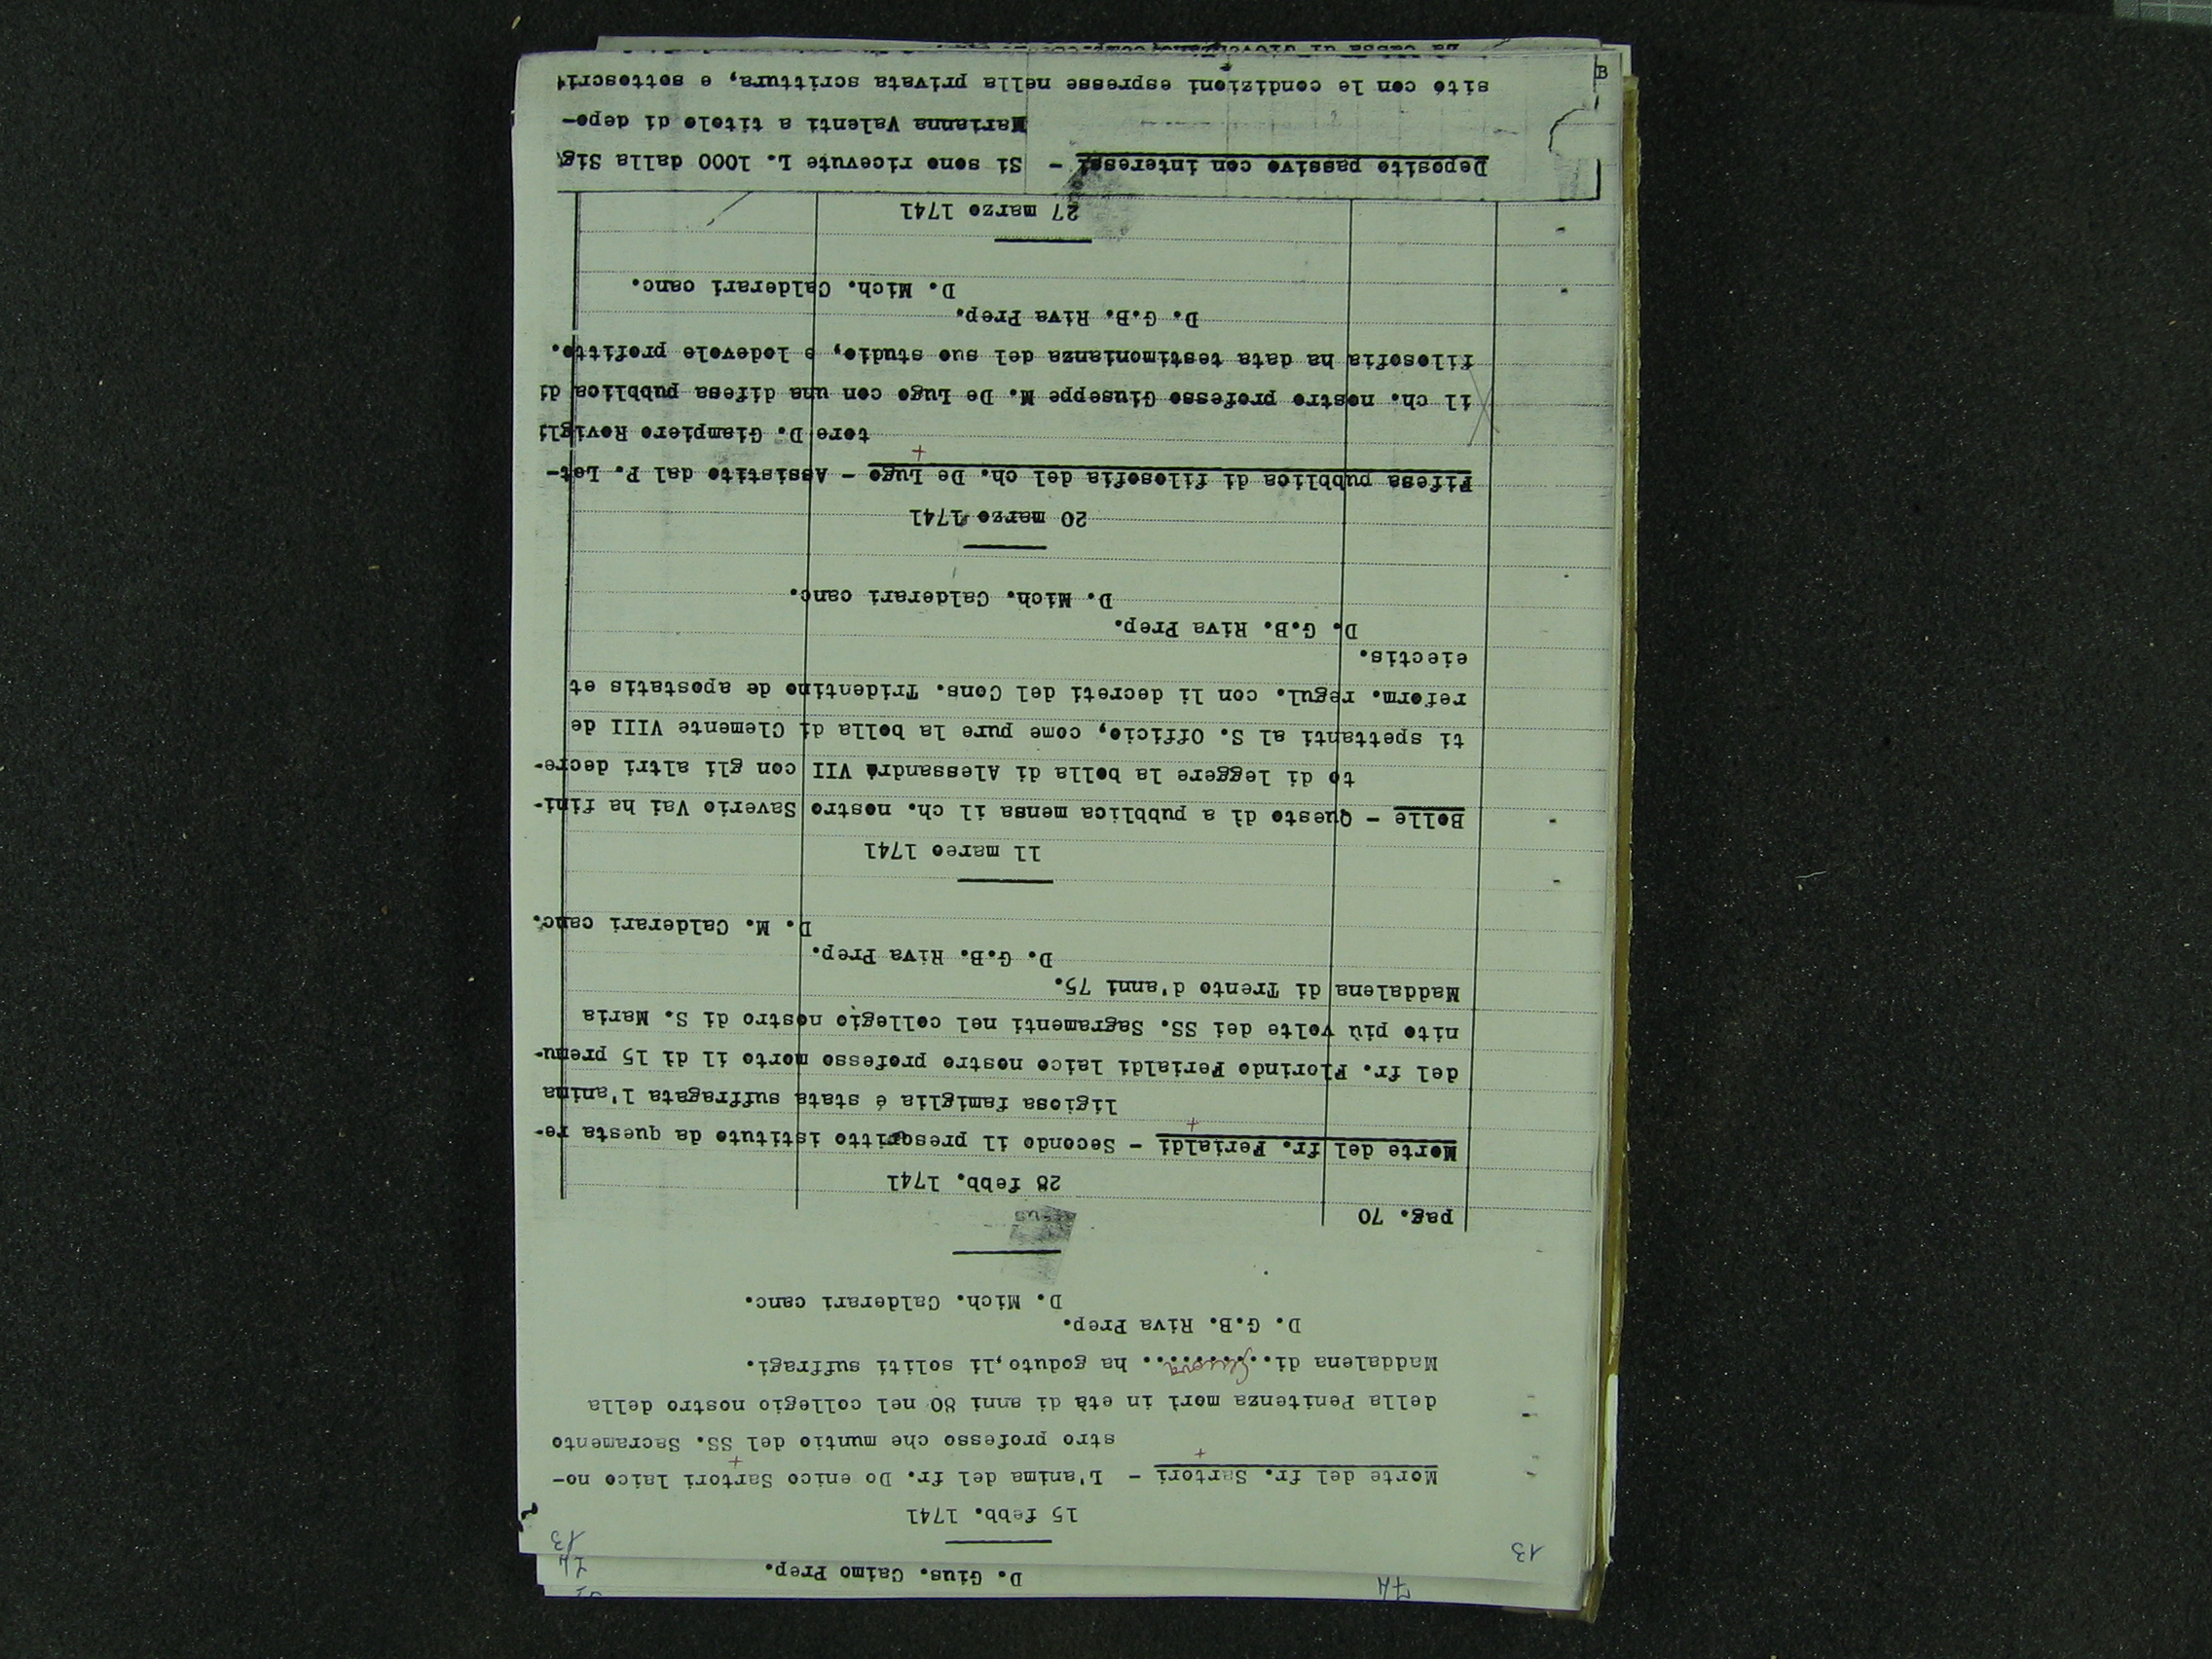 13
15 febb. 1741
Morte del fr. Sartori - L'anima del fr. Do enico Sartori laico no-
stro professo che muntio del SS. Sacramento
della Penitenza morì in età di anni 80 nel collegio nostro della
Maddalena di.......... ha goduto,li soliti suffragi.
D. G.B. Riva Prep.
D. Mich. Calderari canc.
pag. 70
28 febb. 1741
Morte del fr. Ferialdi - Secondo il prescritto istituto da questa re-
ligiosa famiglia é stata suffragata l'anima
del fr. Florindo Ferialdi laico nostro professo morto il dì 15 premu-
nito più volte dei SS. Sagramenti nel collegio nostro di S. Maria
Maddalena di Trento d'anni 75.
D. G.B. Riva Prep.
D. M. Calderari canc.
11 mareo 1741
Bolle - Questo dì a pubblica mensa il ch. nostro Saverio Vai ha fini-
to di leggere la bolla di Alessandro VII con gli altri decre-
ti spettanti al S. Officio, come pure la bolla di Clemente VIII de
reform. regul. con li decreti del Conс. Tridentino de apostatis et
eiectis.
D. G.B. Riva Prep.
D. Mich. Calderari canc.
20 marzo 1741
Fifesa pubblica di filosofia del ch. De Lugo - Assistito dal P. Let-
tore D. Giampiero Rovigli
il ch. nostro professo Giuseppe M. De Lugo con una difesa pubblica di
filosofia ha data testimonianza del suo studio, e lodevole profitto.
D. G.B. Riva Prep.
D. Mich. Calderari canc.
27 marzo 1741
Deposito passivo con interessi - Si sono ricevute L. 1000 dalla Sig
Marianna Valenti a titolo di depo-
sito con le condizioni espresse nella privata scrittura, e sottoscri
B
D. Gius. Caimo Prep.
74
13
74